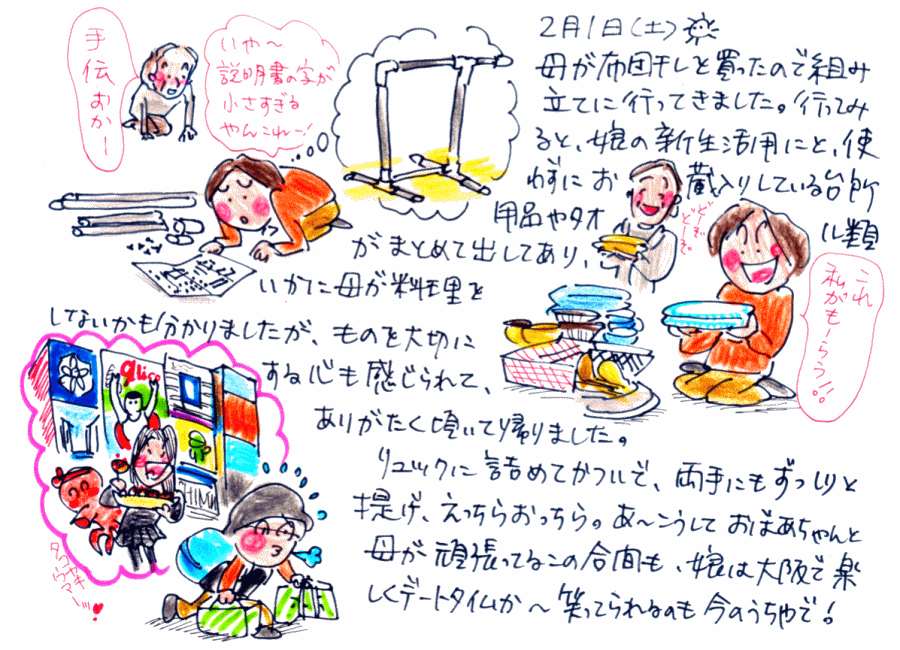 2月1日(土)
母が布団干しを買ったので組み
立てに行ってきました。行ってみ
ると、娘の新生活用にと、使
わずにお蔵入りしている台所
用品やタオル類
がまとめて出してあり、
いかに母が料理を
しないかも分かりましたが、ものを大切に
する心も感じられて、
ありがたく頂いて帰りました。
リュックに詰めてかついで、両手にもずっしりと
提げ、えっちらおっちら。あ〜こうしておばあちゃんと
母が頑張ってるこの合間も、娘は大阪で楽
しくデートタイムか〜笑ってられるのも今のうちやで!
手伝おかー
いや〜
説明書の字が
小さすぎる
やんこれー!
どーぞ
どーぞ
これ
私がもーらう!!
glico
タコヤキ
ウマーッ